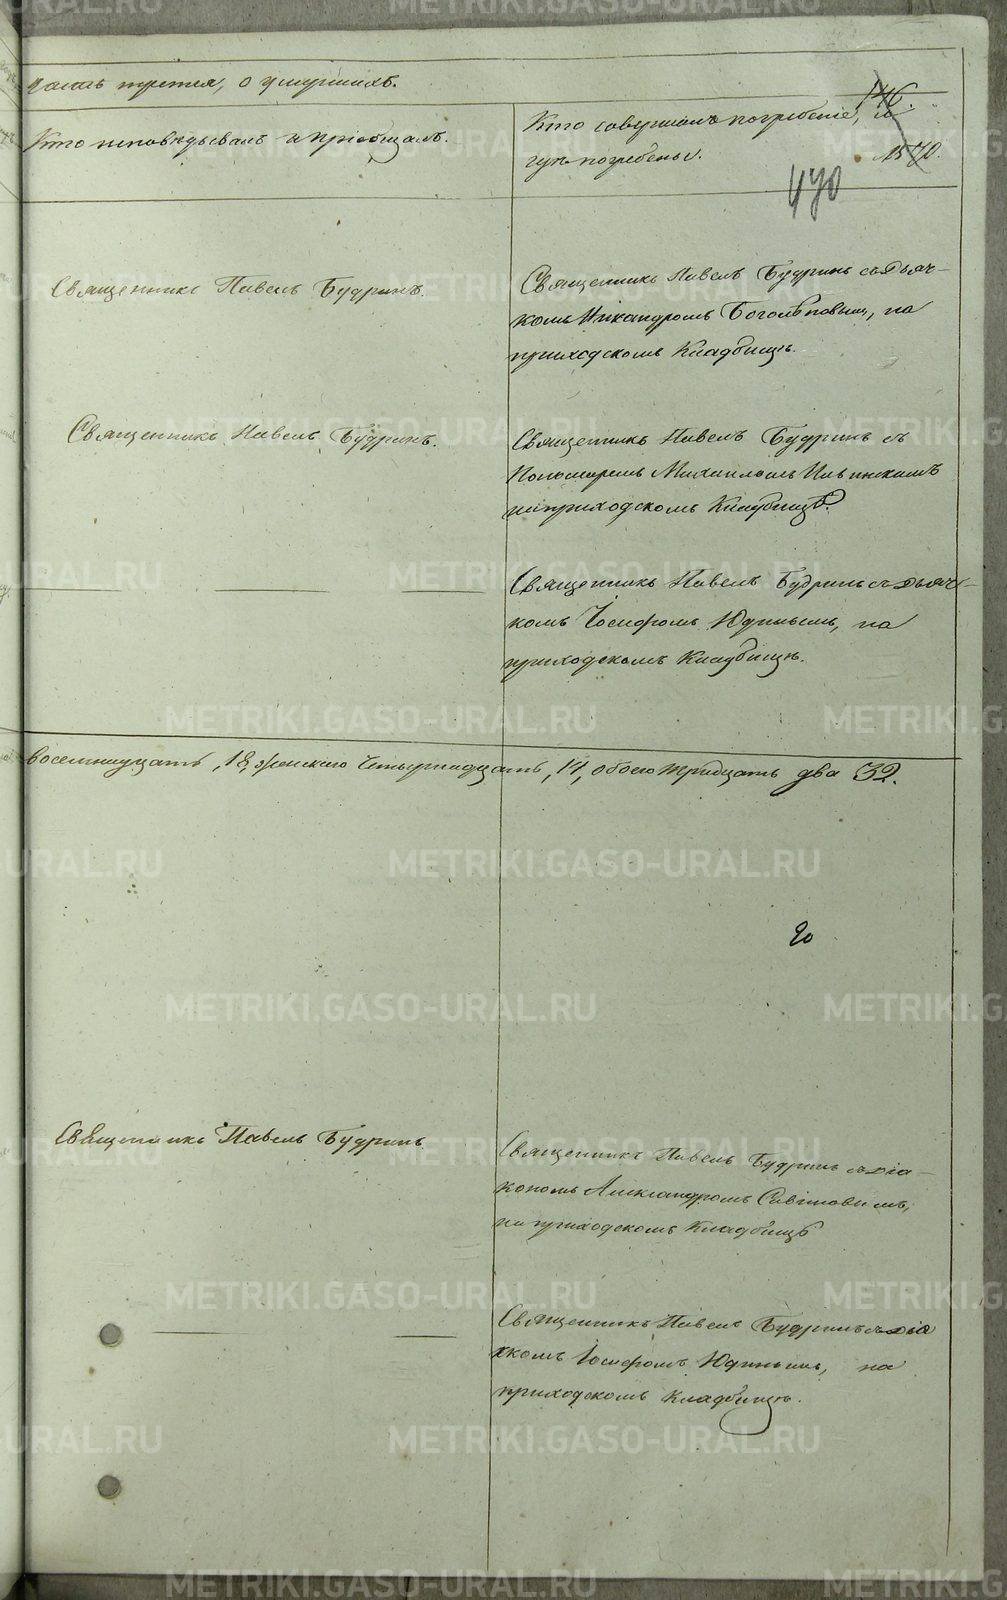 часть третья, о умершихъ.
146.
Кто исповѣдывалъ и пріобщалъ.
Кто совершалъ погребеніе, и
гдѣ погребены.
470
Священникъ Павелъ Будринъ.
Священникъ Павелъ Будринъ съ Дьяч-
комъ Никандромъ Боголѣповымъ, на
приходскомъ Кладбищѣ.
Священникъ Павелъ Будринъ.
Священникъ Павелъ Будринъ съ
Пономаремъ Михаиломъ Ильинскимъ
на приходскомъ Кладбищѣ.
Священникъ Павелъ Будринъ съ Дьяч-
комъ Іосифомъ Юдинымъ, на
приходскомъ Кладбищѣ.
восемнадцать, 18, женскаго четырнадцать, 14, обоего тридцать два 32.
Священникъ Павелъ Будринъ.
Священникъ Павелъ Будринъ съ Діа-
кономъ Александромъ
на приходскомъ Кладбищѣ
Священникъ Павелъ Будринъ съ
Іосифомъ Юдинымъ, на
приходскомъ Кладбищѣ.
METRIKI.GASO-URAL.RU